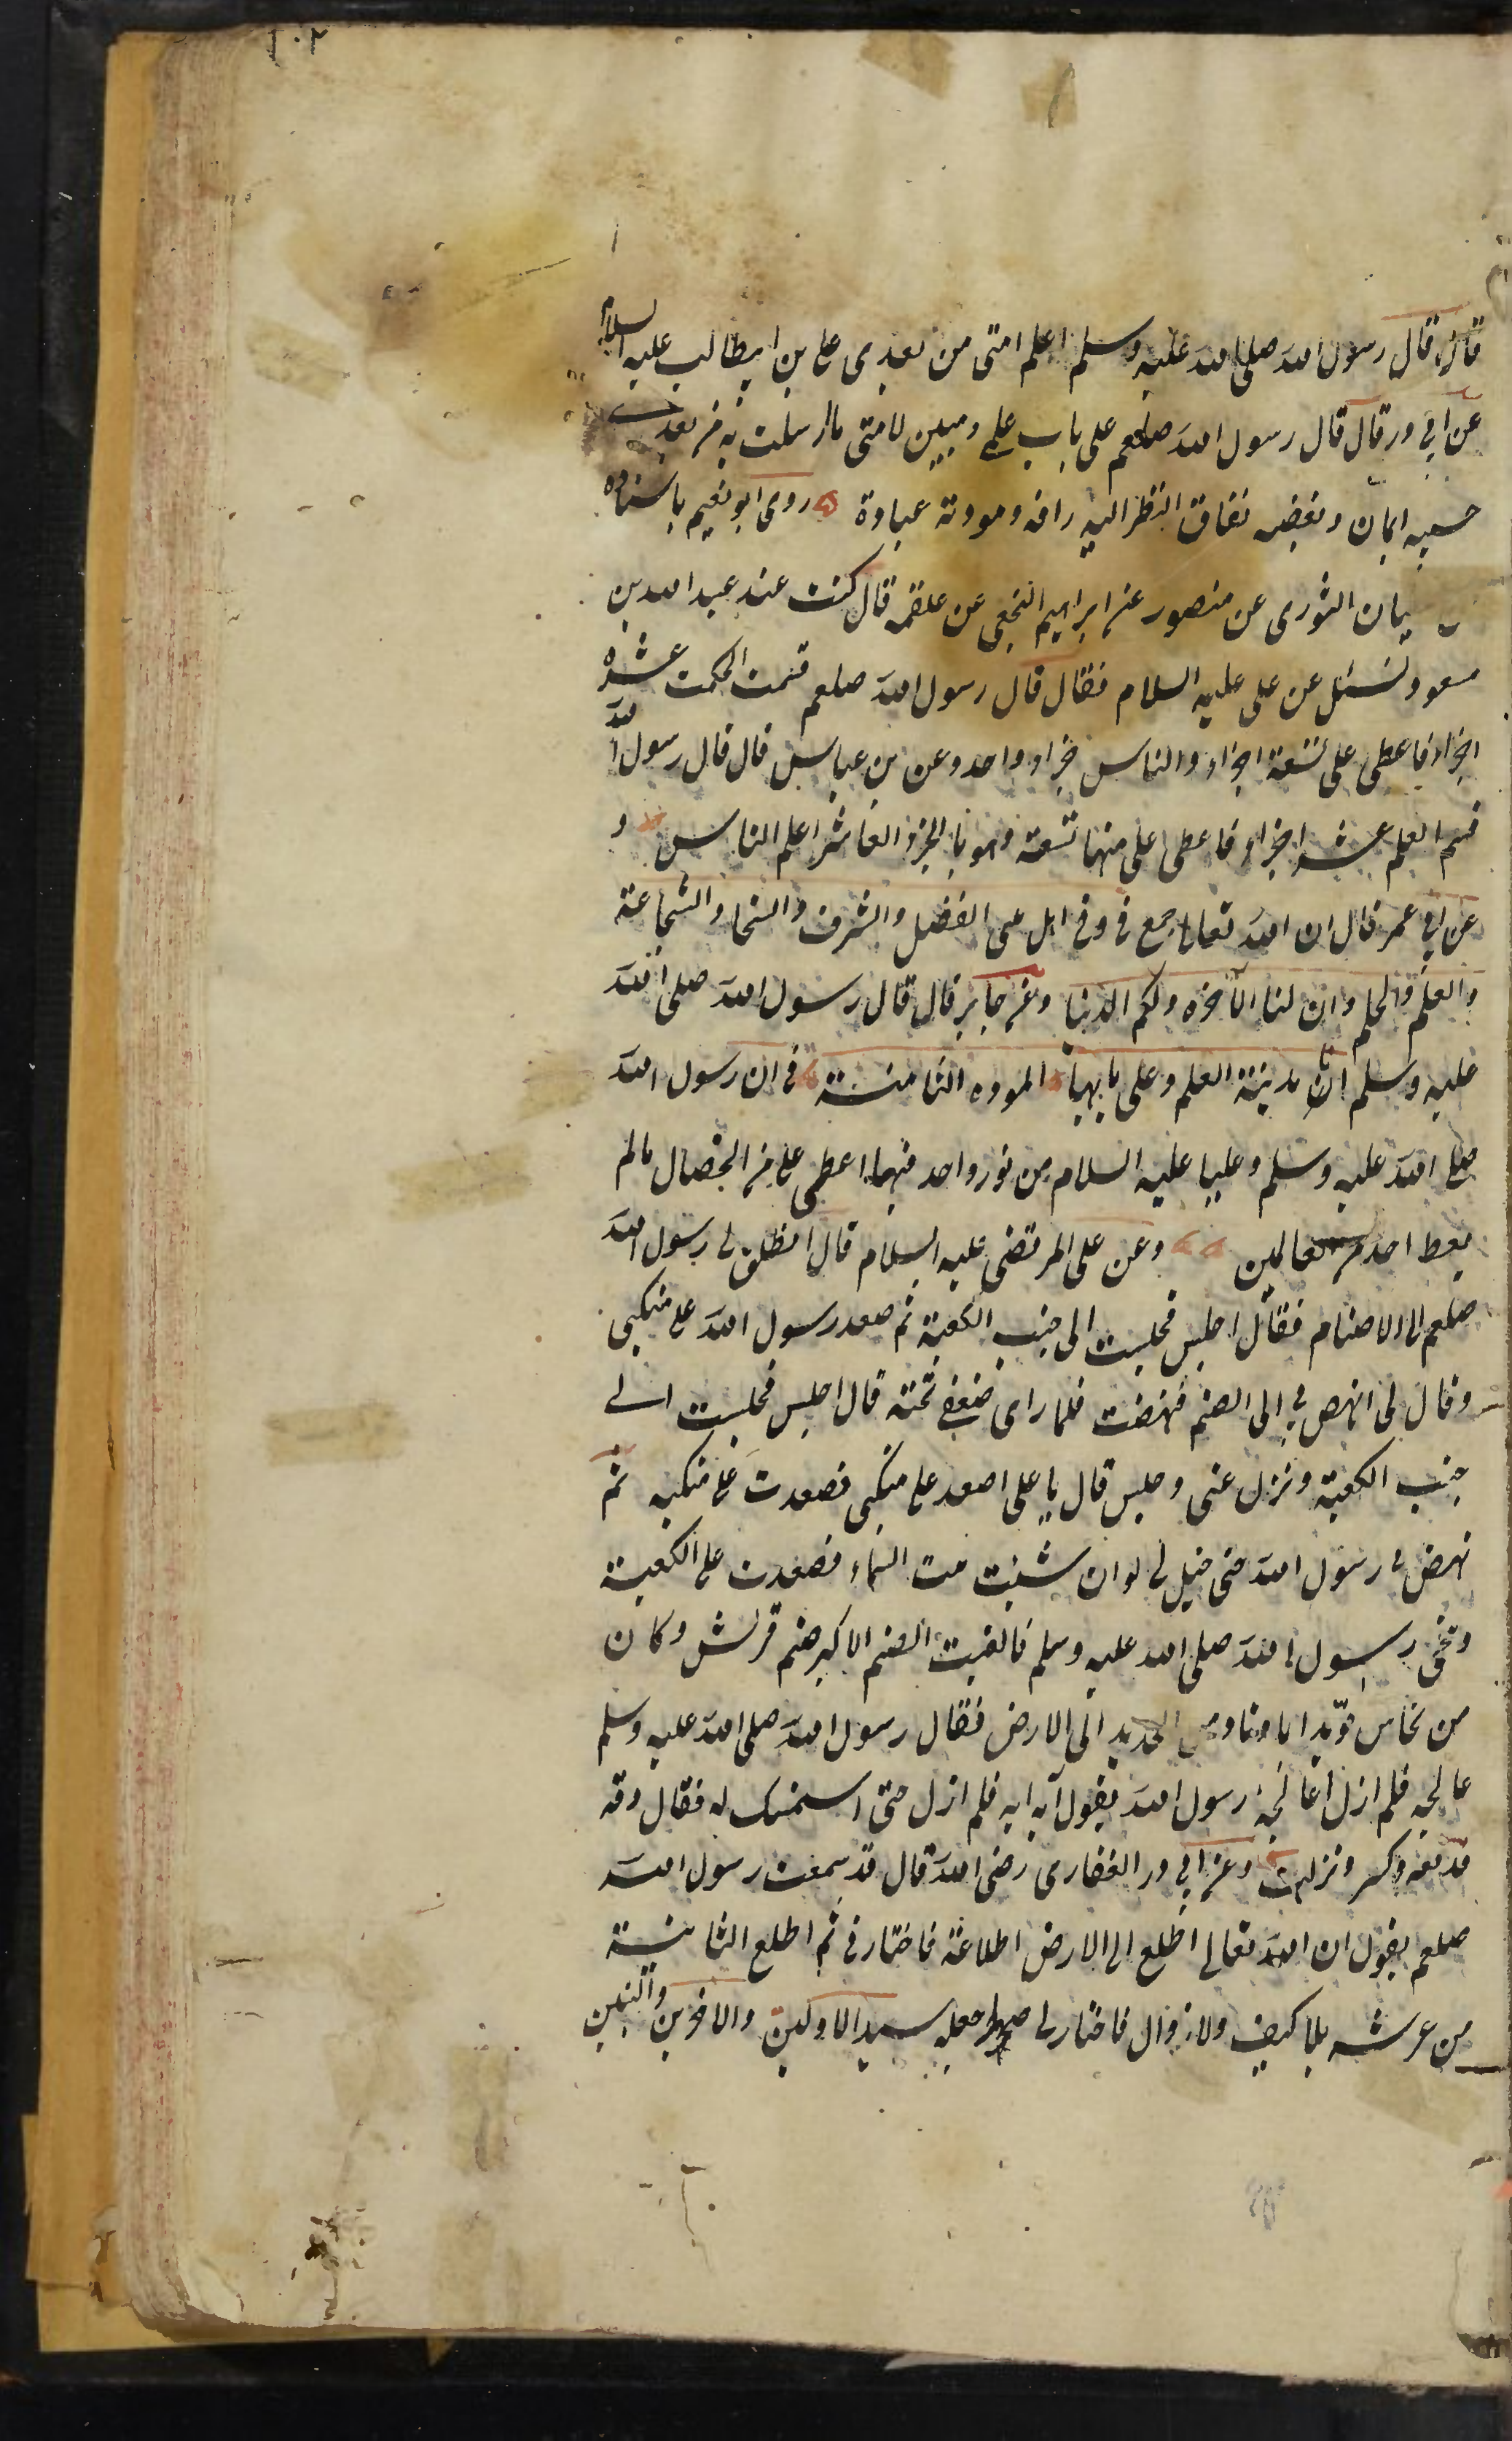 ١٠٢
قال قال رسول الله صلى الله عليه وسلم اعلم امتى من بعدى على بن ابيطالب عليه السلام
عن ابى در قال قال رسول الله صلعم على باب علمى ومبين لامتى ما ارسلت به من بعدى
حبه ايمان وبغضه نفاق النظر اليه رافه ومودته عبادة روى ابو نعيم باسناده
يان الثورى عن منصور عن ابراهيم النخعى عن علقمه قال كنت عند عبد الله بن
مسعود فسئل عن على عليه السلام فقال قال رسول الله صلعم قسمت الحكمت عشره
اجزاء فاعطى على تسعة اجزاء والناس جزاء واحد وعن بن عباس قال قال رسول الله
قسم العلم عشر اجزاء فاعطى على منها تسعه وهو بالجزو العاشر اعلم الناس و
عن ابى عمر قال ان الله تعالى جمع فى وفى اهل بيتى الفضل والشرف والسخا والشجاعة
والعلم والحلم وان لنا الآخره ولكم الدنيا وعن جابر قال قال رسول الله صلى الله
عليه وسلم انا مدينة العلم وعلى بابها الموده الثامنة فى ان رسول الله
صلى الله عليه وسلم وعليا عليه السلام من نور واحد فيهما اعطى على من الخصال مالم
يعط احد من العالمين وعن على المرتضى عليه السلام قال انطلق لى رسول الله
صلعم الى الاصنام فقال اجلس فجلست الى جنب الكعبة ثم صعد رسول الله على منكبى
وقال لى انهض بى الى الصنم فنهضت فلما راى ضعفى تحته قال اجلس فجلست الى
جنب الكعبة ونزل عنى وجلس قال يا على اصعد على منكبى فصعدت على منكبه ثم
نهض بى رسول الله حتى خيل لى لو ان شئت مت السماء فصعدت على الكعبة
وتنحى رسول الله صلى الله عليه وسلم فالقيت الصنم الاكبر صنم قريش وكان
من نحاس موتدا باوتاد من الحديد الى الارض فقال رسول الله صلى الله عليه وسلم
عالجه فلم ازل اعالجه رسول الله يقول ايه ايه فلم ازل حتى استمسك له فقال دقه
فدفعه وكسر ونزلت وعن ابى در الغفارى رضى الله قال قد سمعت رسول الله
صلعم يقول ان الله تعالى اطلع الى الارض اطلاعة فاختارنى ثم اطلع الثانية
من عرشه بلا كيف ولا زوال فاختار لى صهرا جعله سيد الاولين والاخرين والنبين